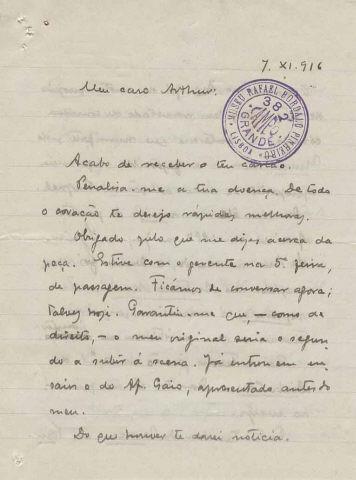 7. XI. 916
Meu caro Arthur:
MUSEU RAFAEL BORDALO PINHEIRO
LISBOA
38
2
GRANDE
Acabo de receber o teu cartão.
Penalisa-me a tua doença. De todo
o coração te desejo rápidas melhoras.
Obrigado pelo que me dizes acerca da
peça. Estive com o gerente na 5ª feira,
de passagem. Ficámos de conversar agora;
talvez hoje. Garantiu-me que, – como de
direito, – o meu original seria o segun-
do a subir á scena. Já entrou em en-
saios o do Af. Gaio, apresentado antes do
meu.
Do que houver te darei noticia.